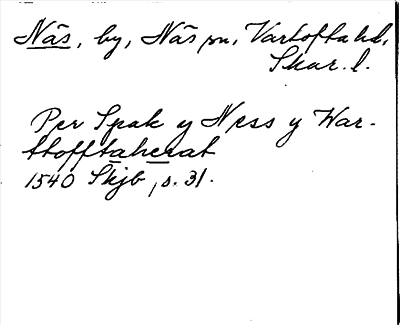 Näs, by, Näs sn, Vartofta hd,
Skar. l.
Per Spak y Ness y War-
ttofftaherat
1540 Skjb, s. 31.